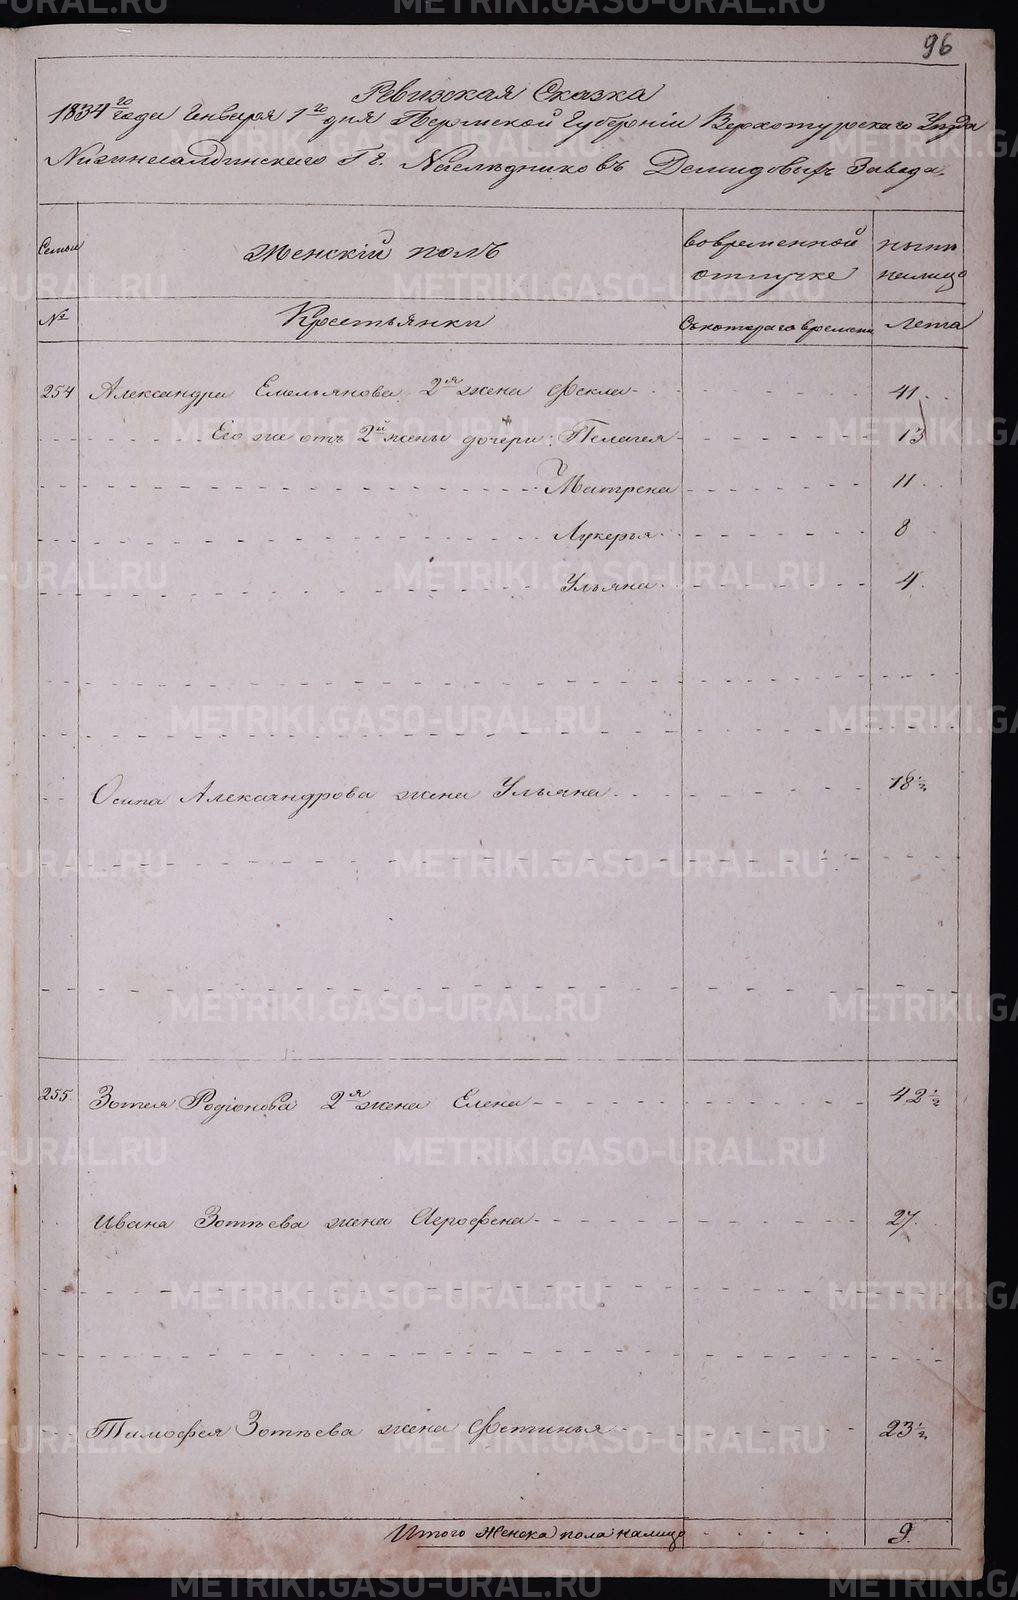 96
Ревизская Сказка
1834го года Генваря 1го дня Пермской Губерніи Верхотурскаго Уезда
Нижнесалдинскаго Гг. Наследниковъ Демидовыхъ Завода.
Семьи
Женскій полъ
во временной отлучке
ныне налицо
№
Крестьянки
Съ котораго времени
Лета
254 Александра Емельянова 2я жена Фекла 41
Его же отъ 2й жены дочери: Пелагея 13
Матрена 11
Лукерья 8
Ульяна 4
Осипа Александрова жена Ульяна 18½
255. Зотея Родіонова 2я жена Елена 42½
Ивана Зотеева жена Аграфена 27.
Тимофея Зотеева жена Фетинья 23½
Итого Женска пола налицо 9.
METRIKI.GASO-URAL.RU